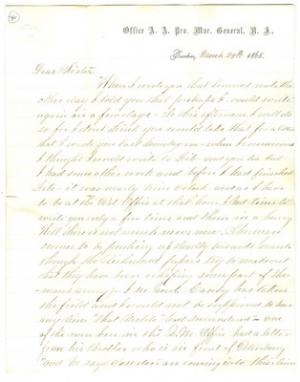 Office A. A. Pro. Mar. General, N. J.
March 29th 1865.
Dear Sister
When I wrote you that hurried note the
other day I told you that perhaps I would write
again in a few days - So this afternoon I will do
so for I dont think you would take that for a letter
that I wrote you last
I thought I would write to
I had some other work and before I had finished
it was nearly nine o'clock and as I have
to be at the Office at that hour I had time to
write you only a few lines and them in a hurry
Well there is not much news now - Sherman
seems to be pushing up steadily towards
though the Richmond papers try to make out
that they have been whipping some part of Sher-
mans army - I see Genl. Canby has taken
the field and I would not be surprised to hear
any time "that Mobile" had surrendered - one
of the men here in the Office had a letter
from his Brother who is in front of Petersburg
and he says deserters are coming into their lines